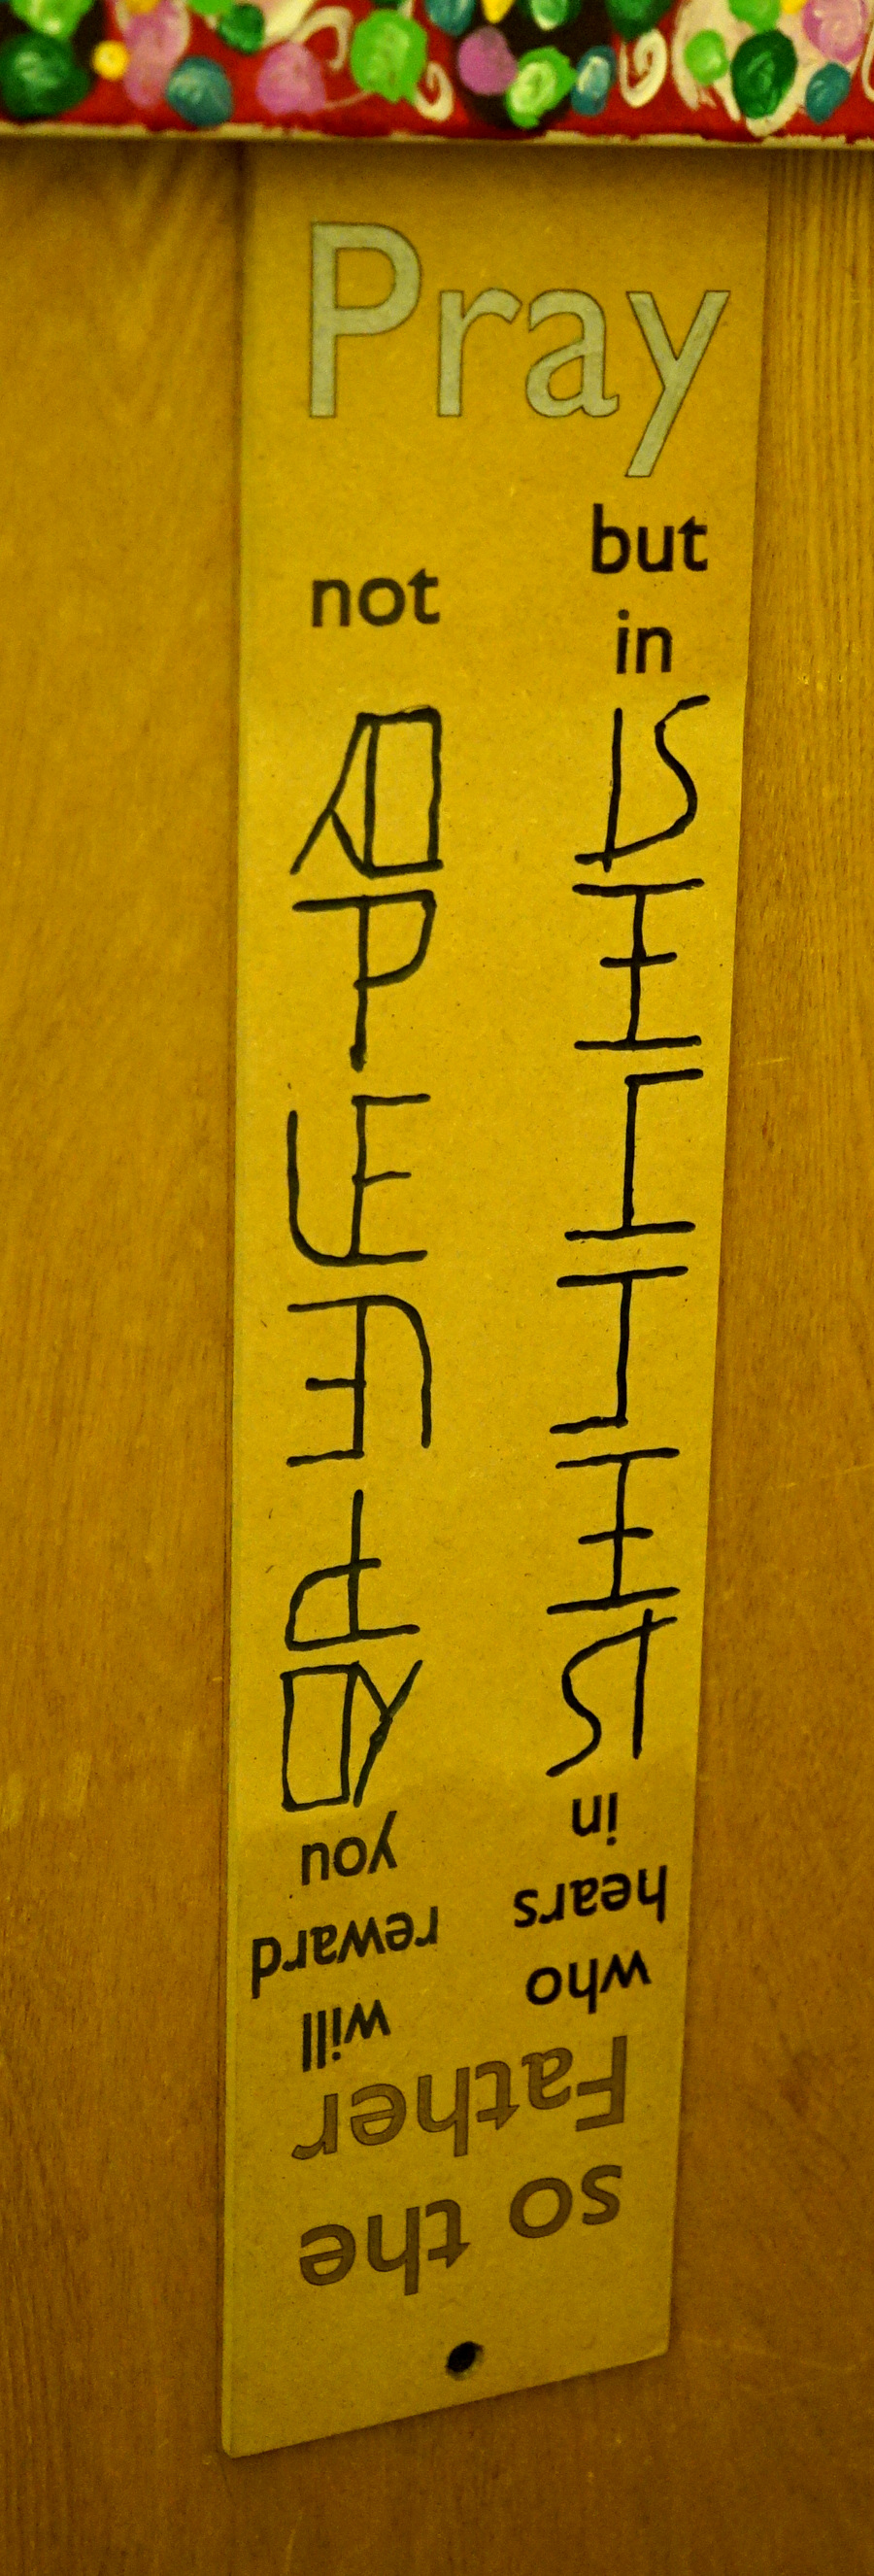 Pray
not
OPENLY
but
in
SECRET
so the
Father
who
hears
in
SECRET
will
reward
you
OPENLY